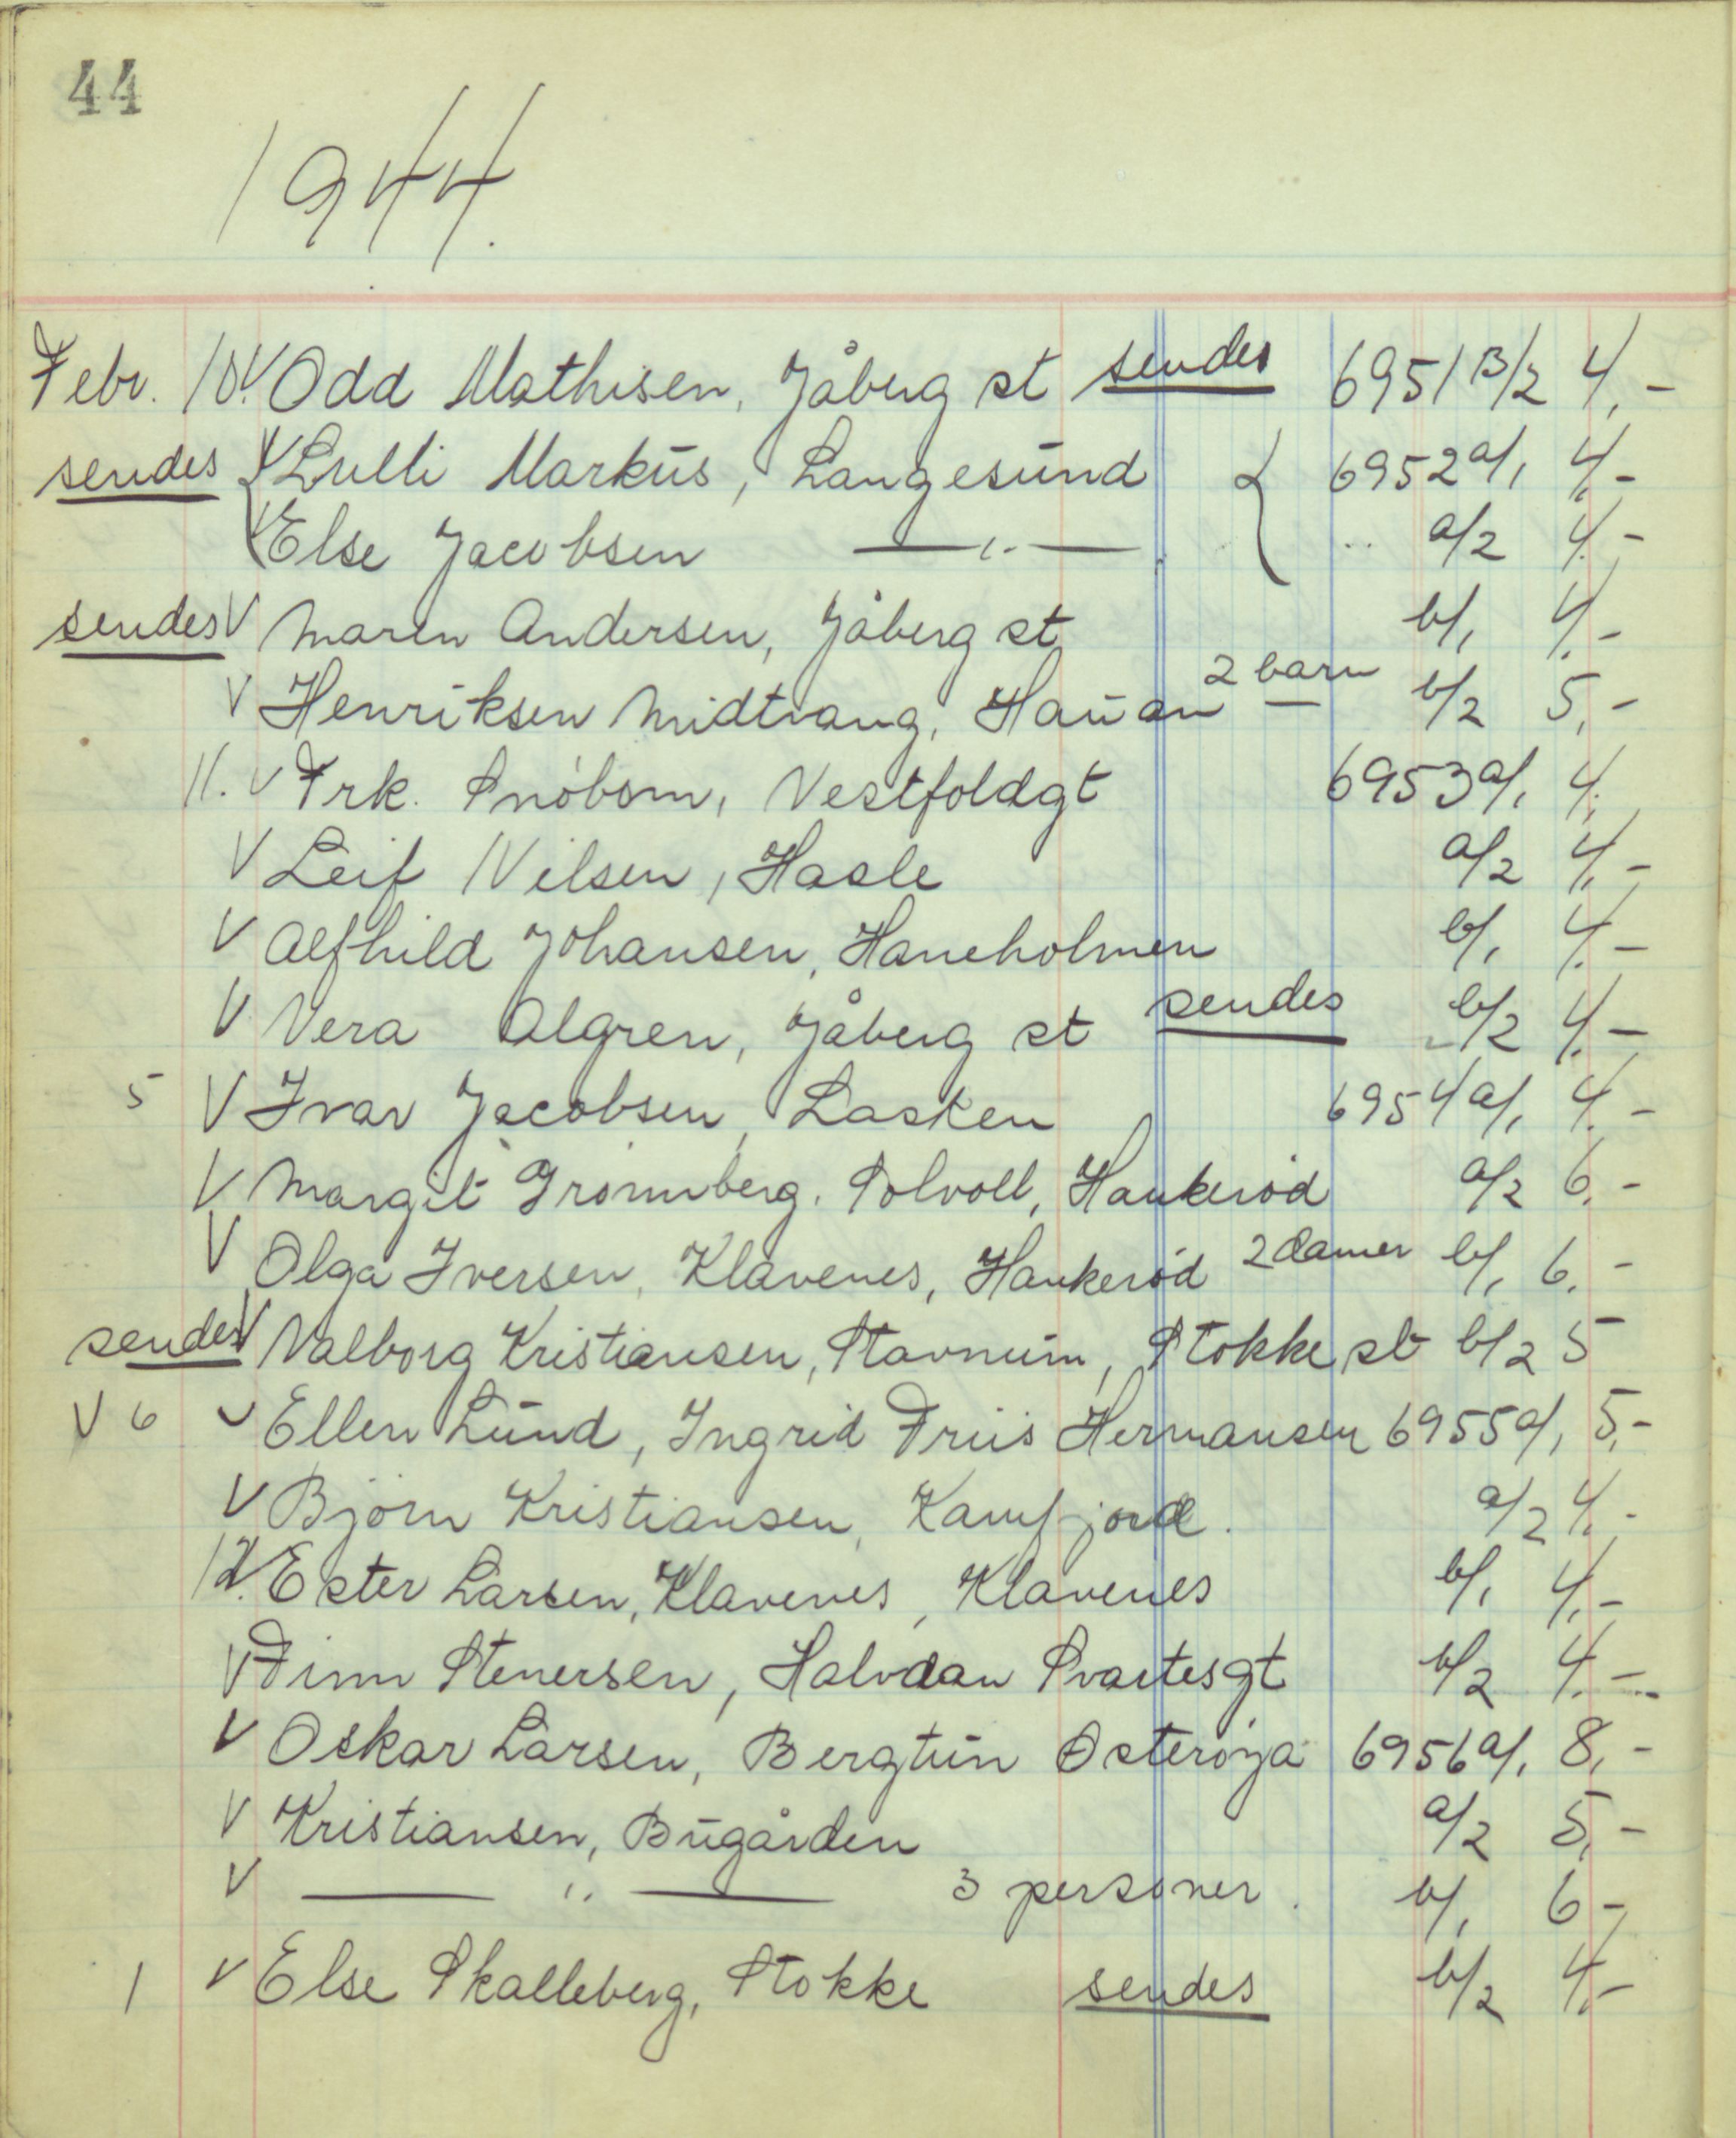 44
1944.
Febr. 10. V Odd Mathisen, Jåberg st sendes 6951 B/2 4,-
sendes V Lulli Markus, Langesund 6952 a/1 4,-
V Else Jacobsen —"— " a/2 4,-
sendes V Maren Andersen, Jåberg st b/1 4,-
V Henriksen Midtvang, Hauan 2 barn b/2 5,-
11. V Frk. Snöbom, Vestfoldgt 6953 a/1 4,
V Leif Nilsen, Hasle a/2 4,-
V Alfhild Johansen, Haneholmen b/1 4,-
V Vera Algren, Jåberg st sendes b/2 4,-
5 V Ivar Jacobsen, Lasken 6954 a/1 4,-
V Margit Grönnberg, Solvoll, Haukeröd a/2 6,-
V Olga Iversen, Klavenes, Haukeröd 2 damer b/1 6,-
sendes V Valborg Kristiansen, Stavnum, Stokke st b/2 5
V 6 V Ellen Lund, Ingrid Friis Hermansen 6955 a/1 5,-
V Björn Kristiansen, Kamfjord. a/2 4,-
12. V Ester Larsen, Klavenes, Klavenes b/1 4,-
V Finn Stenersen, Halvdan Svartesgt b/2 4,-
V Oskar Larsen, Bergtun Österöya 6956 a/1 8,-
V Kristiansen, Bugården a/2 5,-
V —"— 3 personer. b/1 6,-
1 V Else Skalleberg, Stokke sendes b/2 4,-